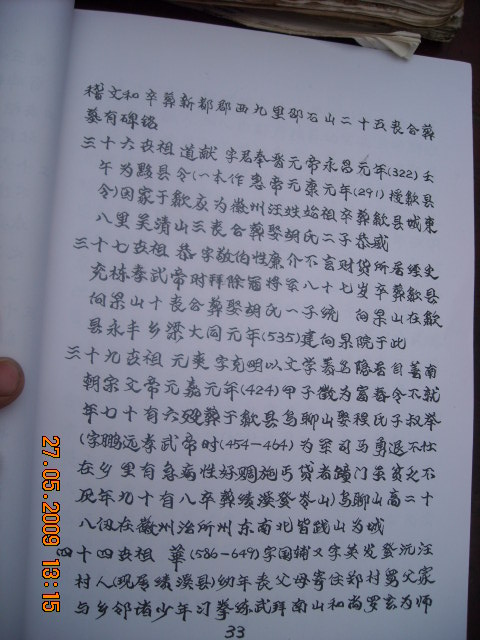 稽文和卒葬新都郡西九里邵石山二十五丧合葬
墓有碑铭
三十六世祖道献 字君奉晋元帝永昌元年(322)壬
午为黟县令(一本作惠帝元康元年(291)授歙县
令)因家于歙应为徽州汪姓始祖卒葬歙县城东
八里吴清山三丧合葬娶胡氏二子恭彧
三十七世祖 恭字敬伯性廉介不言财货所居经史
充栋孝武帝时拜除寇将军八十七岁卒葬歙县
向杲山十丧合葬娶胡氏一子统 向杲山在歙
县永丰乡梁大同元年(535)建向杲院于此
三十九世祖 元爽字克明以文学著名隐居自善南
朝宋文帝元嘉元年(424)甲子徵为富春令不就
年七十有六殁葬于歙县乌聊山娶程氏子叔举
(字鹏远孝武帝时(454-464)为军司马勇退不仕
在乡里有急病性好赒施丐贷者踵门虽贫乏不
厌年九十有八卒葬绩溪登岺山)乌聊山高二十
八仞在徽州治所州东南北皆践山为城
四十四世祖 華(586-649)字国辅又字英发登沅汪
村人(现属绩溪县)幼年丧父母寄住郑村舅父家
与乡邻诸少年习拳练武拜南山和尚罗玄为师
33
27.05.2009 13:15